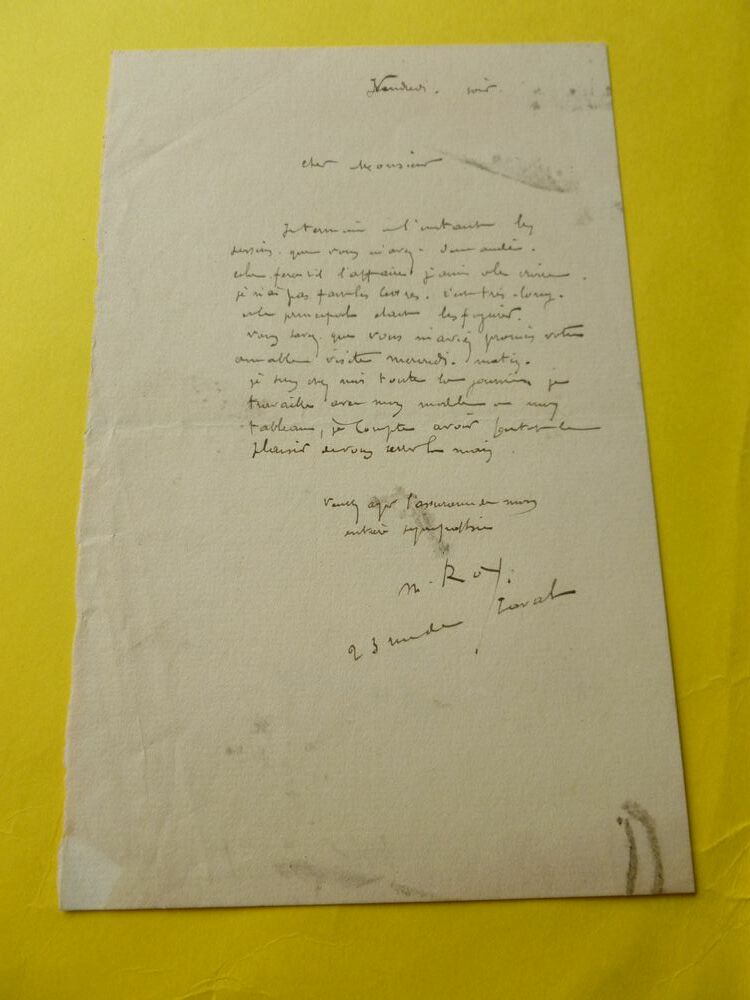 Vendredi. soir.
cher Monsieur
Je termine à l'instant les
dessins. que vous m'avez. demandé.
cela fera t'il l'affaire j'aime a le croire.
je n'ai pas fait les lettres. c'est très. long.
le principale étant les figures.
vous savez que vous m'aviez promis votre
aimable visite mercredi. matin.
je suis chez moi toute la journée je
travaille avec mon modèle a mon
tableau, je compte avoir le
plaisir de vous serrer la main.
veuillez agréer l'assurance de mes
entière sympathie
M. Roy.
23 rue de